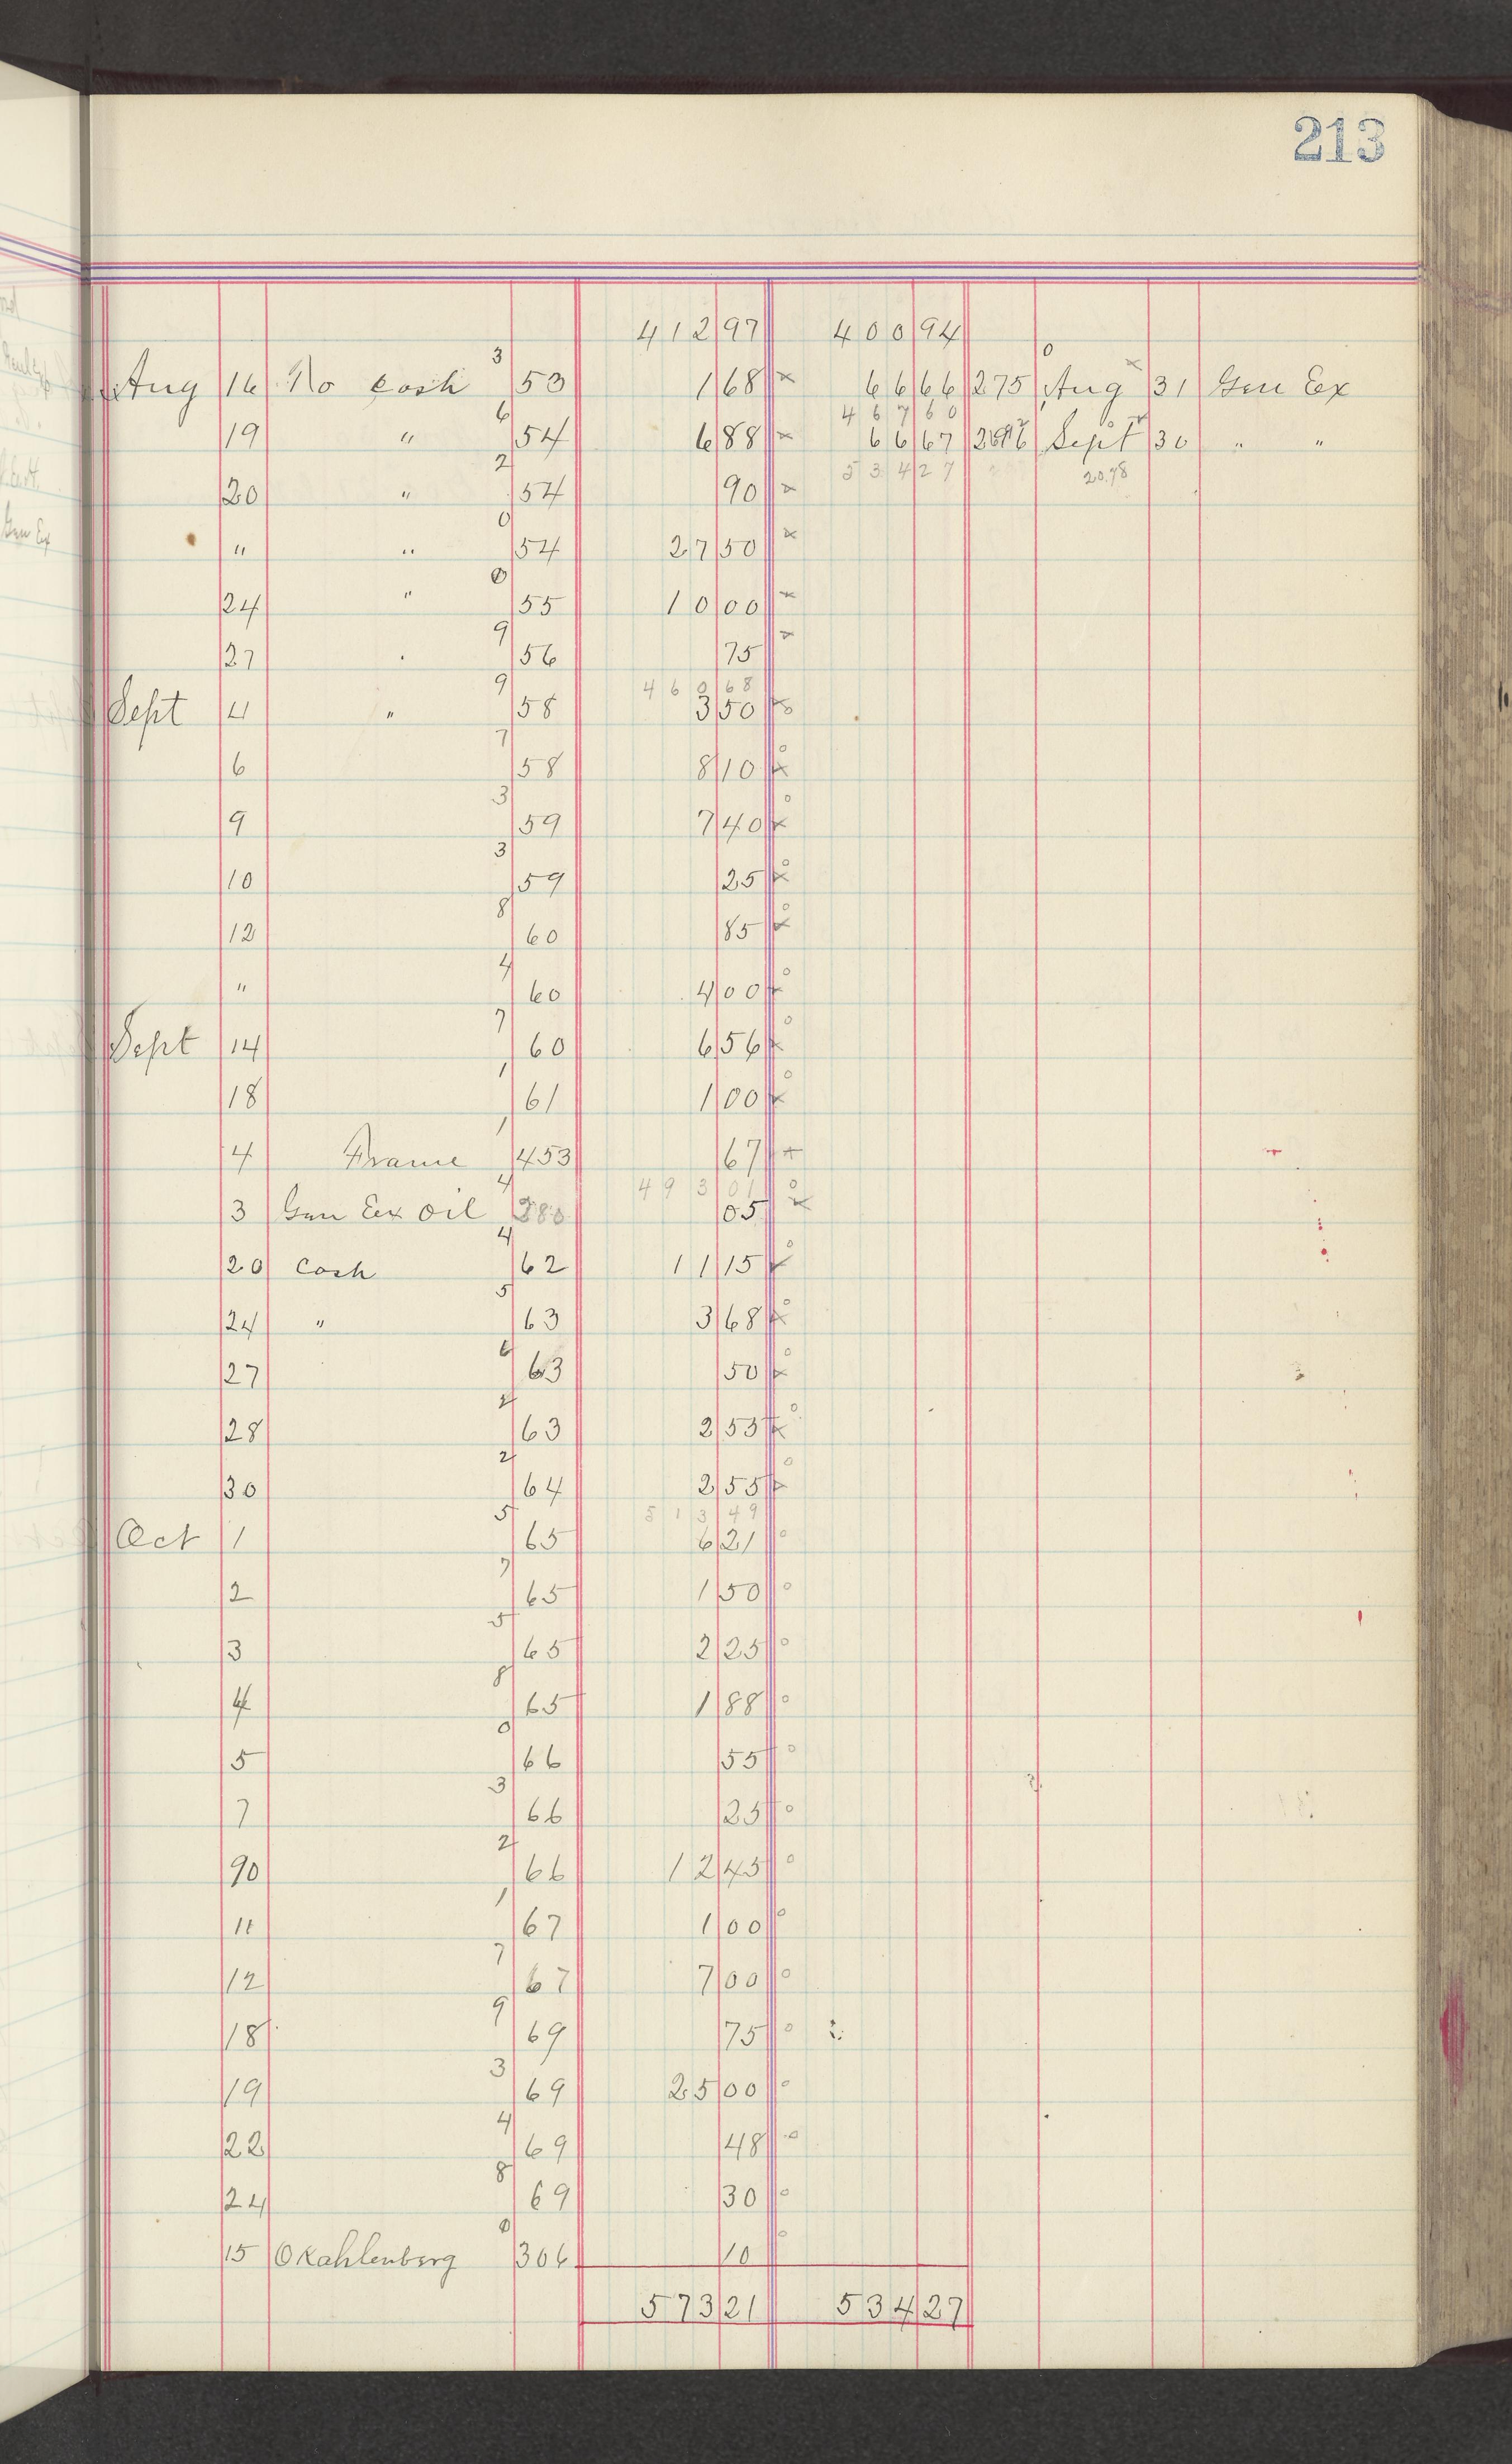 213
412 97 400 94
3 0
Aug 16 To cash 53 1 68 x 66 66 275 Aug 31 Gen Ex
6 467 60
19 " 54 6 88 x 66 67 Sept 30 " "
2 534 27 20.78
20 " 54 90 x
0
" " 54 27 50 x
0
24 " 55 10 00 x
9
27 " 56 75 x
9 460 68
Sept 4 " 58 3 50 x
7
6 58 8 10 x
3
9 59 7 40 x
3
10 59 25 x
8
12 60 85 x
4
" 60 4 00 x
7
Sept 14 60 6 56 x
1
18 61 1 00 x
1
4 Frame 453 67 x
4 493 01
3 Gen Ex Oil 380 05 x
4
20 Cash 62 11 15 x
5
24 " 63 3 68 x
6
27 63 50 x
2
28 63 2 53 x
2
30 64 2 55 x
5 513 49
Oct 1 65 6 21
7
2 65 1 50
5
3 65 2 25
8
4 65 1 88
0
5 66 55
3
7 66 25
2
90 66 12 45
1
11 67 1 00
7
12 67 7 00
9
18 69 75
3
19 69 25 00
4
22 69 48
8
24 69 30
0
15 O Kahlenberg 306 10
573 21 534 27